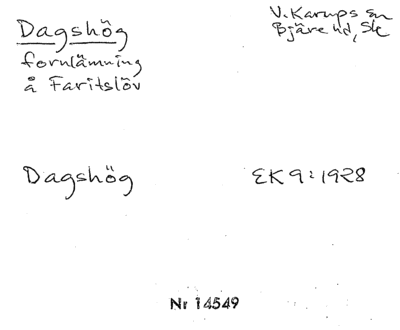 Dagshög
V. Karups sn
fornlämning
Bjäre hd, Sk
å Faritslöv
Dagshög
EK 9:1928
Nr 14549